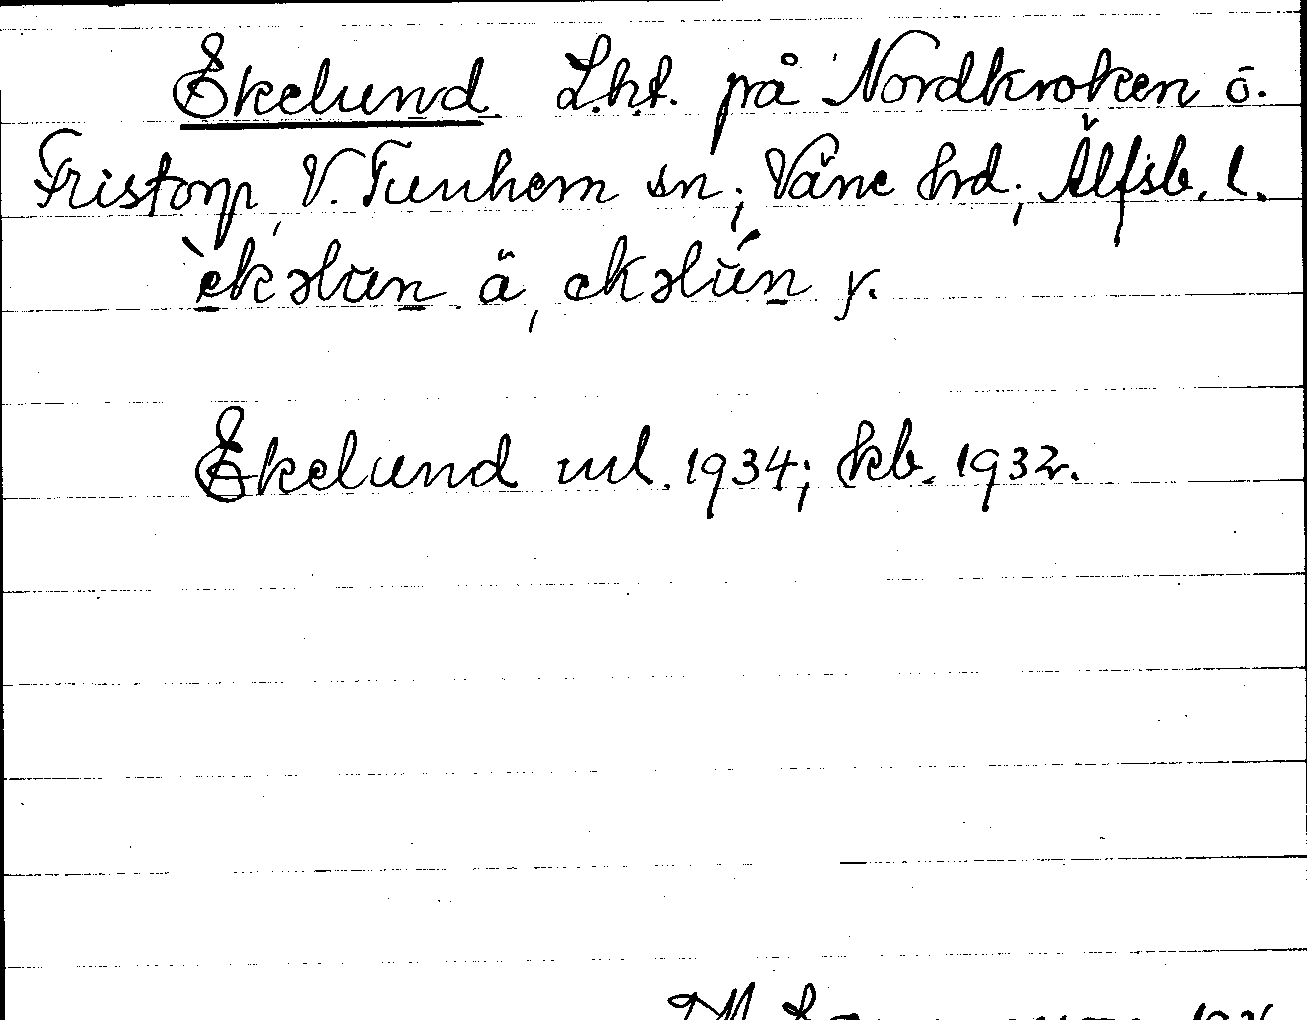 Ekelund L.h.t. på Nordkroken o.
Fristorp, V. Tunhem sn; Väne hrd; Älfsb. l.
èkəlun ä, ekəlún y.
Ekelund ml. 1934; kb. 1932.